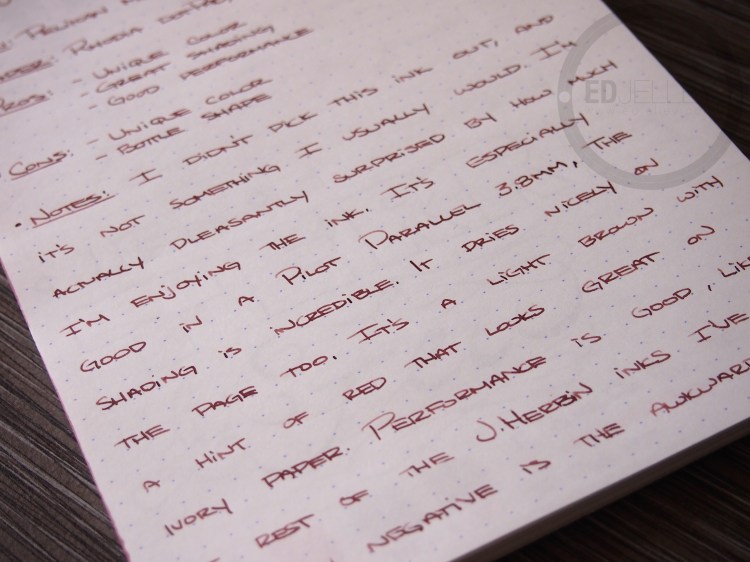 PELIKAN
RHODIA DOTPAD
PROS: - UNIQUE COLOR
- GREAT SHADING
- GOOD PERFORMANCE
CONS: - UNIQUE COLOR
- BOTTLE SHAPE
• NOTES: I DIDN'T PICK THIS INK OUT, AND
IT'S NOT SOMETHING I USUALLY WOULD. I'M
ACTUALLY PLEASANTLY SURPRISED BY HOW MUCH
I'M ENJOYING THE INK. IT'S ESPECIALLY
GOOD IN A PILOT PARALLEL 3.8MM, THE
SHADING IS INCREDIBLE. IT DRIES NICELY ON
THE PAGE TOO. IT'S A LIGHT BROWN WITH
A HINT OF RED THAT LOOKS GREAT ON
IVORY PAPER. PERFORMANCE IS GOOD, LIKE
REST OF THE J. HERBIN INKS I'VE
NEGATIVE IS THE AWKWARD
EDJELLEY